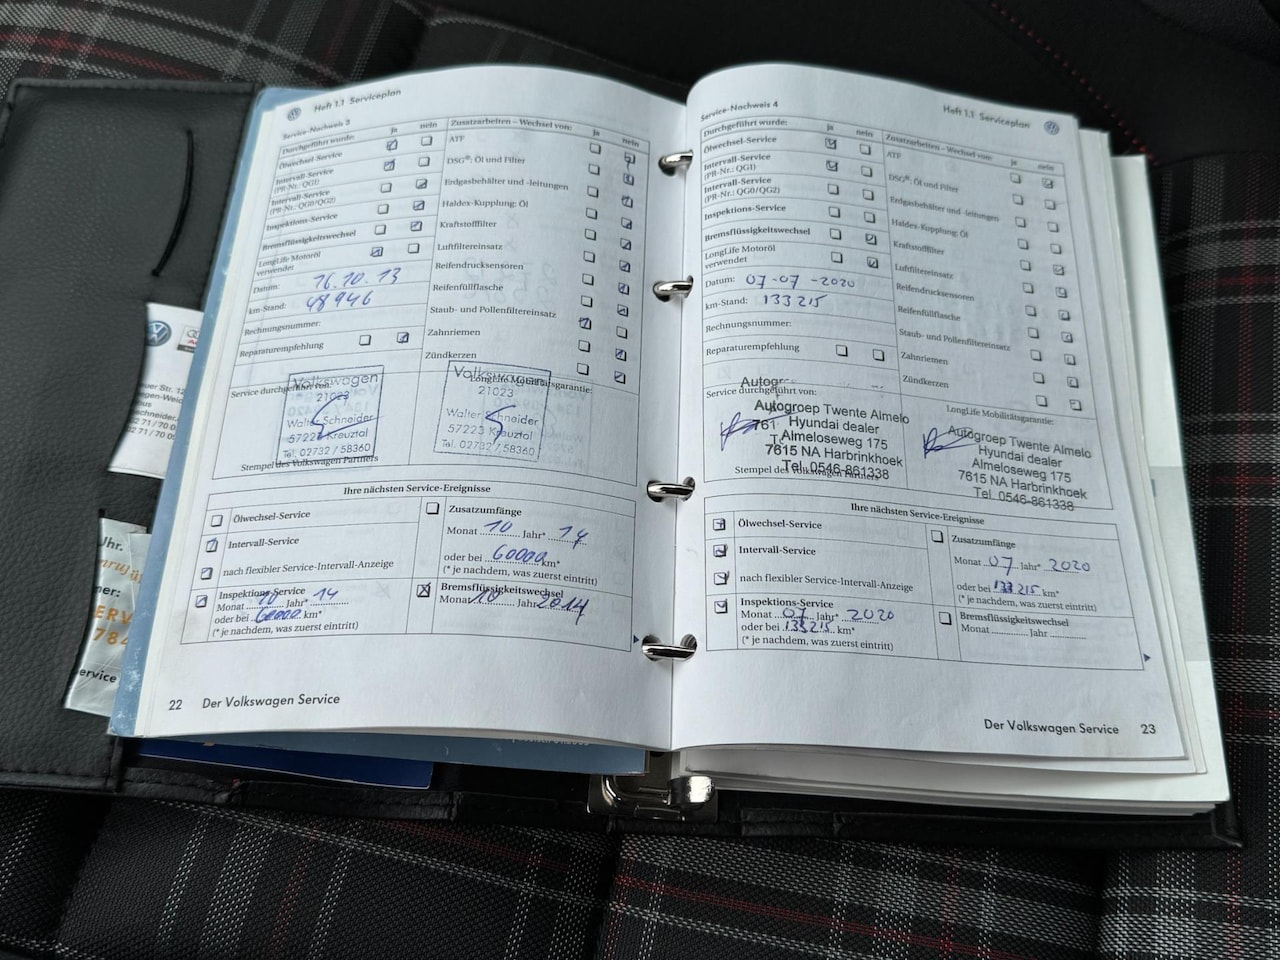 Heft 1.1 Serviceplan
Service-Nachweis 3
Durchgeführt wurde: ja nein
Ölwechsel-Service
Intervall-Service
(PR-Nr.: QG1)
Intervall-Service
(PR-Nr.: QG0/QG2)
Inspektions-Service
Bremsflüssigkeitswechsel
LongLife Motoröl
verwendet
Datum: 16.10.13
km-Stand: 48946
Rechnungsnummer:
Reparaturempfehlung
Zusatzarbeiten – Wechsel von: ja nein
ATF
DSG®: Öl und Filter
Erdgasbehälter und -leitungen
Haldex-Kupplung: Öl
Kraftstofffilter
Luftfiltereinsatz
Reifendrucksensoren
Reifenfüllflasche
Staub- und Pollenfiltereinsatz
Zahnriemen
Zündkerzen
Service durchgeführt von:
Volkswagen
21023
Walter Schneider
57223 Kreuztal
Tel. 02732 / 58360
Stempel des Volkswagen Partners
LongLife Mobilitätsgarantie:
Volkswagen
21023
Walter Schneider
57223 Kreuztal
Tel. 02732 / 58360
Ihre nächsten Service-Ereignisse
Ölwechsel-Service
Intervall-Service
nach flexibler Service-Intervall-Anzeige
Inspektions-Service
Monat 10 Jahr* 14
oder bei 60000 km*
(* je nachdem, was zuerst eintritt)
Zusatzumfänge
Monat 10 Jahr* 14
oder bei 60000 km*
(* je nachdem, was zuerst eintritt)
Bremsflüssigkeitswechsel
Monat 10 Jahr 2014
22 Der Volkswagen Service
Heft 1.1 Serviceplan
Service-Nachweis 4
Durchgeführt wurde: ja nein
Ölwechsel-Service
Intervall-Service
(PR-Nr.: QG1)
Intervall-Service
(PR-Nr.: QG0/QG2)
Inspektions-Service
Bremsflüssigkeitswechsel
LongLife Motoröl
verwendet
Datum: 07-07-2020
km-Stand: 133215
Rechnungsnummer:
Reparaturempfehlung
Zusatzarbeiten – Wechsel von: ja nein
ATF
DSG®: Öl und Filter
Erdgasbehälter und -leitungen
Haldex-Kupplung: Öl
Kraftstofffilter
Luftfiltereinsatz
Reifendrucksensoren
Reifenfüllflasche
Staub- und Pollenfiltereinsatz
Zahnriemen
Zündkerzen
Service durchgeführt von:
Autogroep Twente Almelo
Hyundai dealer
Almeloseweg 175
7615 NA Harbrinkhoek
Tel. 0546-861338
Stempel des Volkswagen Partners
LongLife Mobilitätsgarantie:
Autogroep Twente Almelo
Hyundai dealer
Almeloseweg 175
7615 NA Harbrinkhoek
Tel. 0546-861338
Ihre nächsten Service-Ereignisse
Ölwechsel-Service
Intervall-Service
nach flexibler Service-Intervall-Anzeige
Inspektions-Service
Monat 07 Jahr* 2020
oder bei 133215 km*
(* je nachdem, was zuerst eintritt)
Zusatzumfänge
Monat 07 Jahr* 2020
oder bei 133215 km*
(* je nachdem, was zuerst eintritt)
Bremsflüssigkeitswechsel
Monat Jahr
Der Volkswagen Service 23
Uhr.
784